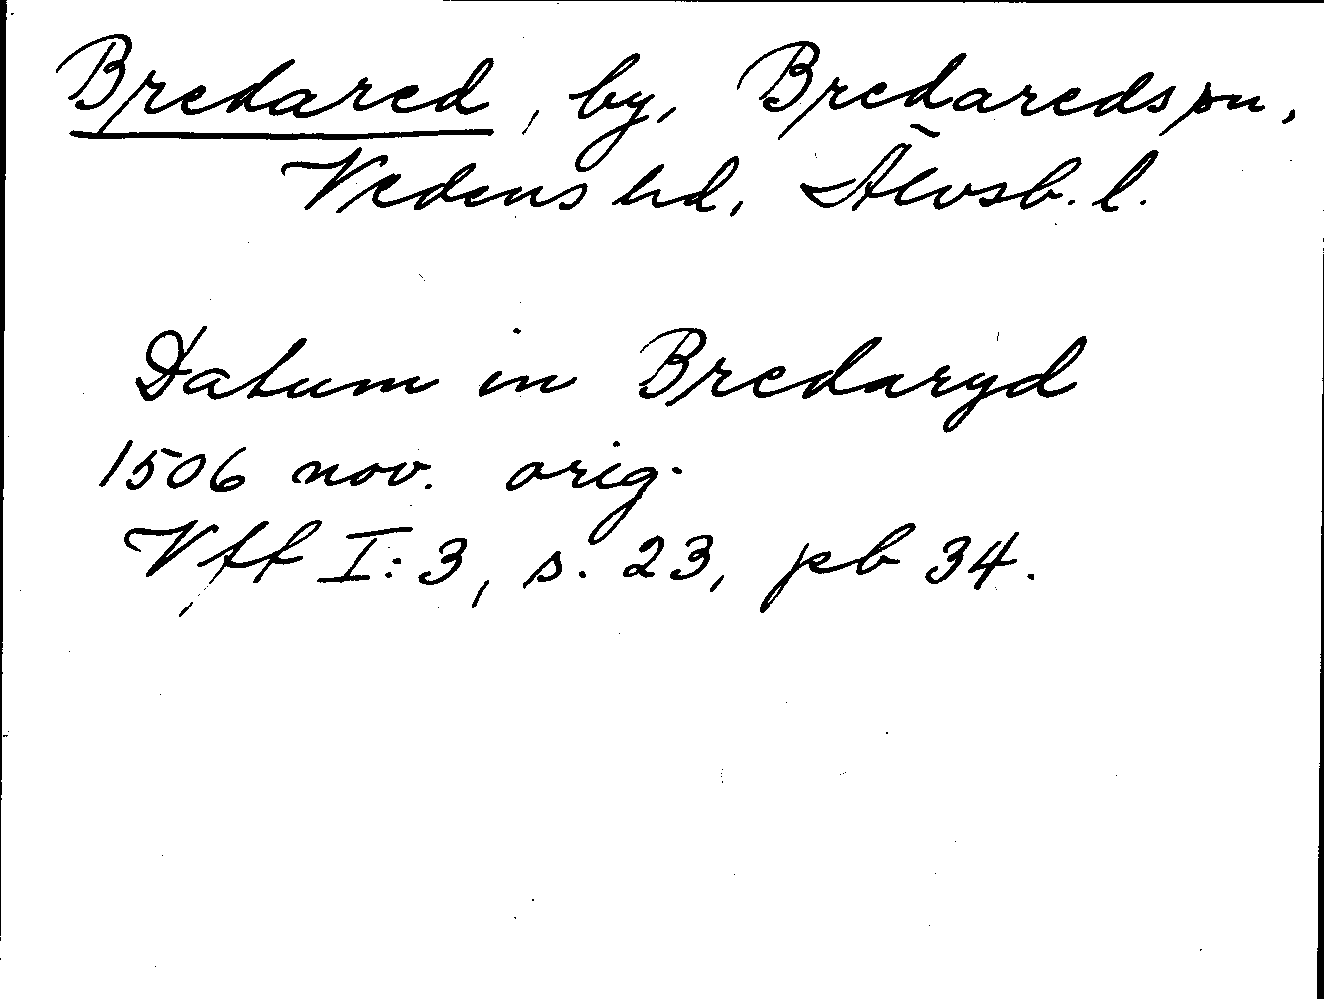 Bredared, by, Bredareds sn,
Vedens hd, Älvsb. l.
Datum in Bredaryd
1506 nov. orig.
Vff I:3, s. 23, pb 34.